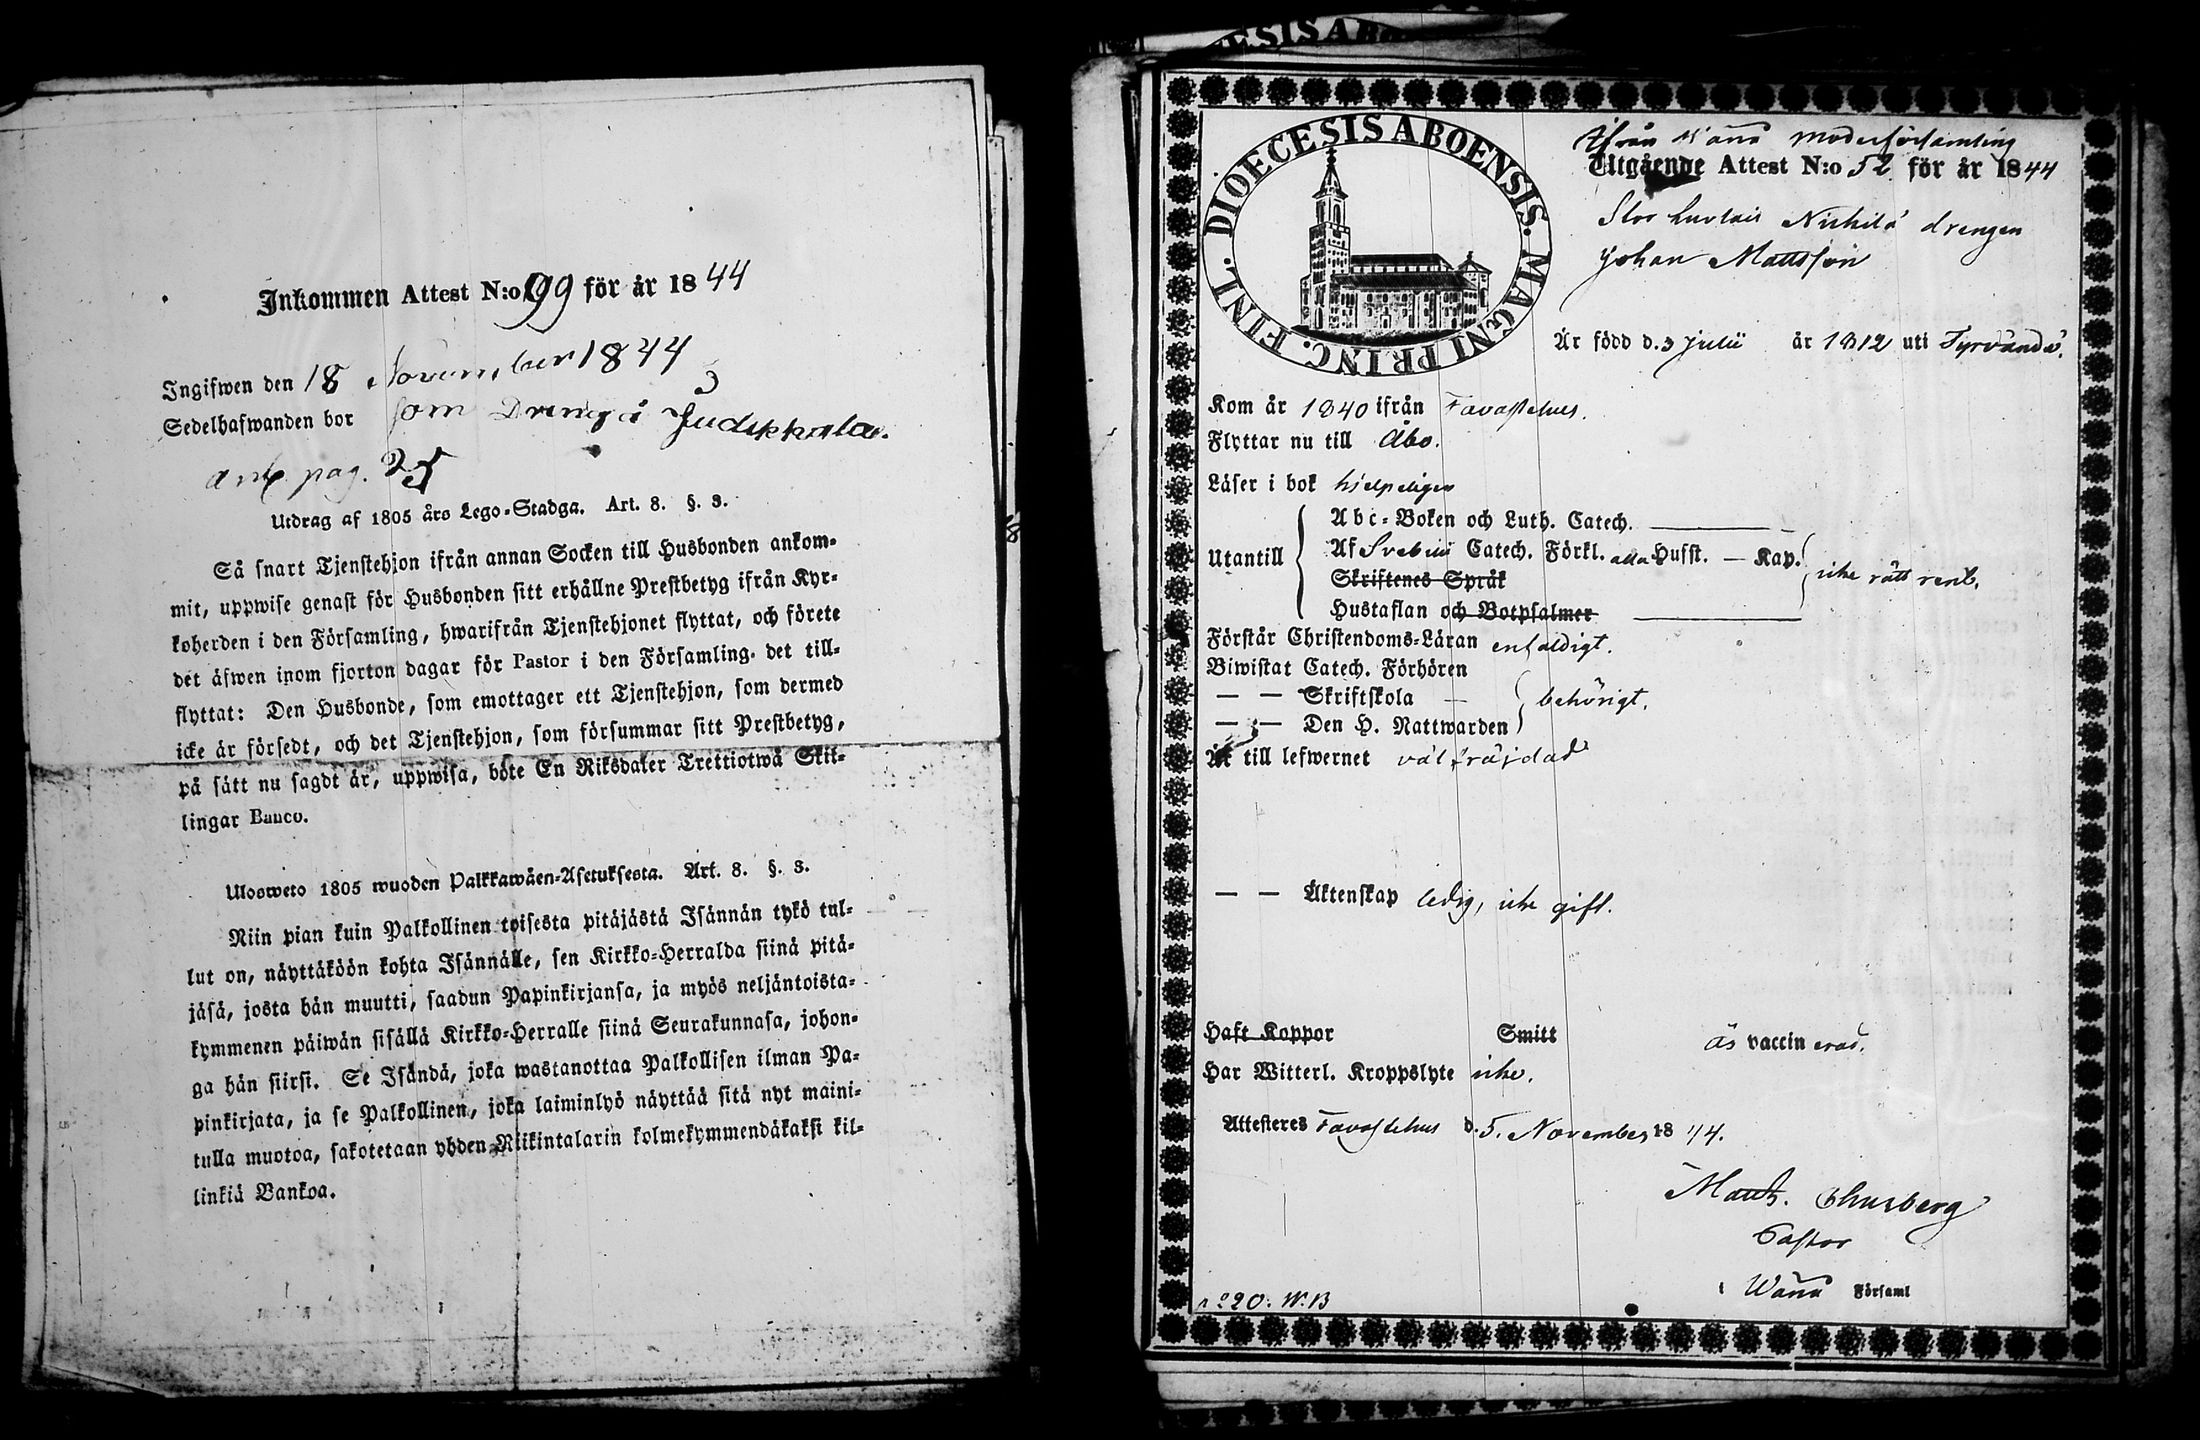 Inkommen Attest N:o 99 för år 1844
Ingifwen den 18 November 1844
Sedelhafwanden bor som Dreng å Judikkala.
ant. pag. 25
Utdrag af 1805 års Lego-Stadga. Art. 8. §. 3.
Så snart Tjenstehjon ifrån annan Socken till Husbonden ankom-
mit, uppwise genast för Husbonden sitt erhållne Prestbetyg ifrån Kyr-
koherden i den Församling, hwarifrån Tjenstehjonet flyttat, och förete
det äfwen inom fjorton dagar för Pastor i den Församling, det till-
flyttat: Den Husbonde, som emottager ett Tjenstehjon, som dermed
icke är försedt, och det Tjenstehjon, som försummar sitt Prestbetyg,
på sätt nu sagdt är, uppwisa, böte En Riksdaler Trettiotwå Skil-
lingar Banco.
Ulosweto 1805 wuoden Palkkawäen-Asetuksesta. Art. 8. §. 3.
Niin pian kuin Palkollinen toisesta pitäjästä Isännän tykö tul-
lut on, näyttäköön kohta Isännälle, sen Kirkko-Herralda siinä pitä-
jäsä, josta hän muutti, saadun Papinkirjansa, ja myös neljäntoista-
kymmenen päiwän sisällä Kirkko-Herralle siinä Seurakunnasa, johon-
ga hän siirsi. Se Isändä, joka wastanottaa Palkollisen ilman Pa-
pinkirjata, ja se Palkollinen, joka laiminlyö näyttää sitä nyt maini-
tulla muotoa, sakotetaan yhden Riikintalarin kolmekymmendäkaksi kil-
linkiä Bankoa.
DIOECESIS ABOENSIS. MAGNI PRINC. FINL.
Ifrån Wånå moderförsamling
Utgående Attest N:o 52 för år 1844
Stor Luolais Nickilä drengen
Johan Mattsson
Är född d. 3 Julii år 1812 uti Tyrvändö.
Kom år 1840 ifrån Tavastehus.
Flyttar nu till Åbo.
Läser i bok hjelpeligen
Utantill
Abc-Boken och Luth. Catech.
Af Svebilii Catech. Förkl. alla Husst. — Kap.
Skriftenes Språk
Hustaflan och Botpsalmer
icke rätt rent.
Förstår Christendoms-Läran enfaldigt.
Biwistat Catech. Förhören
— — Skriftskola — behörigt.
— — Den H. Nattwarden
Är till lefwernet välfräjdad
— — Äktenskap ledig, icke gift.
Haft Koppor Smitt äs vaccinerad.
Har Witterl. Kroppslyte icke.
Attesteres Tavastehus d. 5. November 1844.
Thusberg
Pastor
i Wånå Församl
No 20. W.B